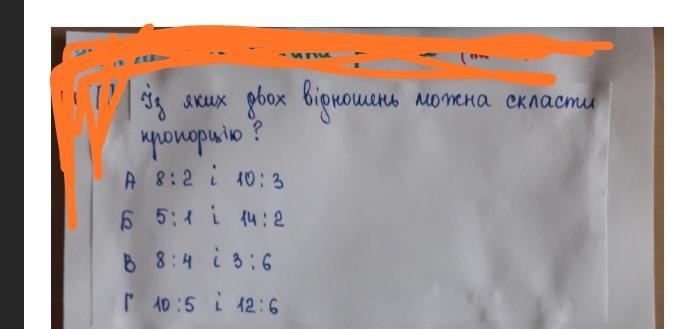 Із яких двох відношень можна скласти
пропорцію?
А 8:2 і 10:3
Б 5:1 і 14:2
В 8:4 і 3:6
Г 10:5 і 12:6